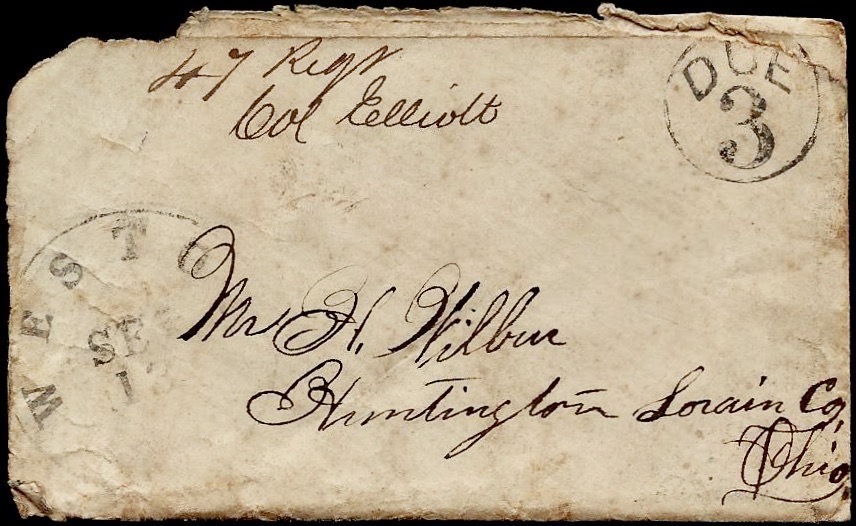 47 Regt
Col Elliott
DUE
3
WESTO
SE
1
Mr H. Wilbur
Huntington Lorain Co,
Ohio,